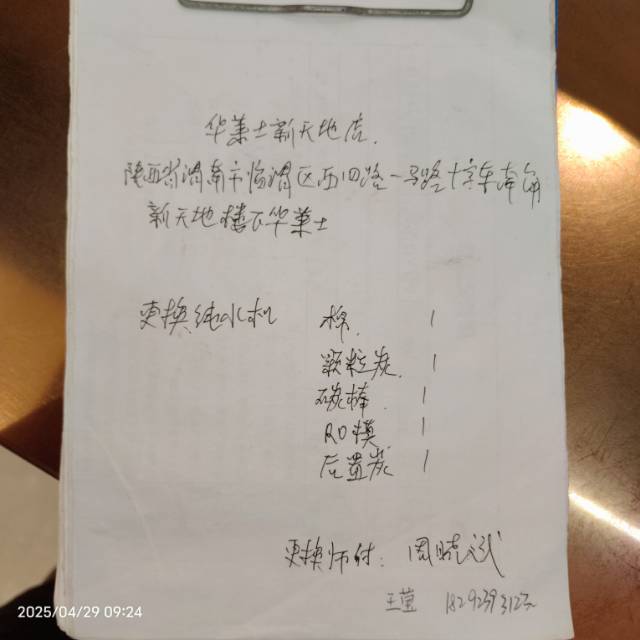 华莱士新天地店.
陕西省渭南市临渭区西四路一马路十字东南角
新天地楼下华莱士
更换纯水机 棉. 1
颗粒炭. 1
碳棒. 1
RO膜 1
后置炭 1
更换师付: 周晓斌
王莹
2025/04/29 09:24